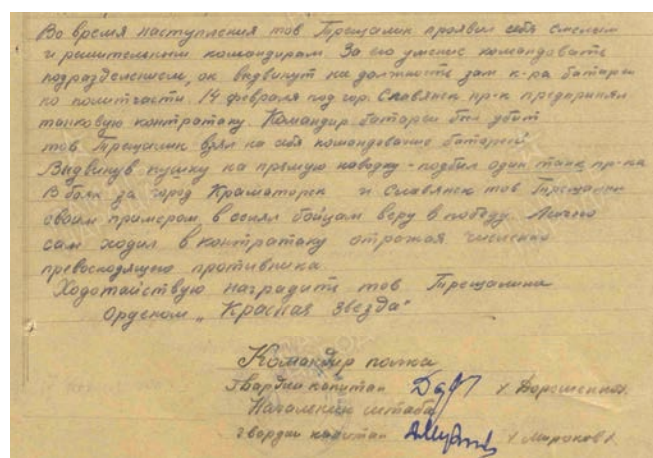 Во время наступления тов Трещалин проявил себя смелым
и решительным командирам. За его умение командовать
подразделением, он выдвинут на должность зам к-ра батареи
по политчасти. 14 февраля под гор. Славянск пр-к предпринял
танковую контратаку. Командир батареи был убит
тов Трещалин взял на себя командование батареей
Выдвинув пушку на прямую наводку - подбил один танк пр-ка
В боях за город Краматорск и Славянск тов Трещалин
своим примером вселял бойцам веру в победу. Лично
сам ходил в контратаку отражая численно
превосходящего противника.
Ходотайствую наградить тов Трещалина
Орденом „Красная Звезда"
Командир полка
Гвардии капитан /Дорошенко/.
Начальник штаба
гвардии капитан /Миронов/.